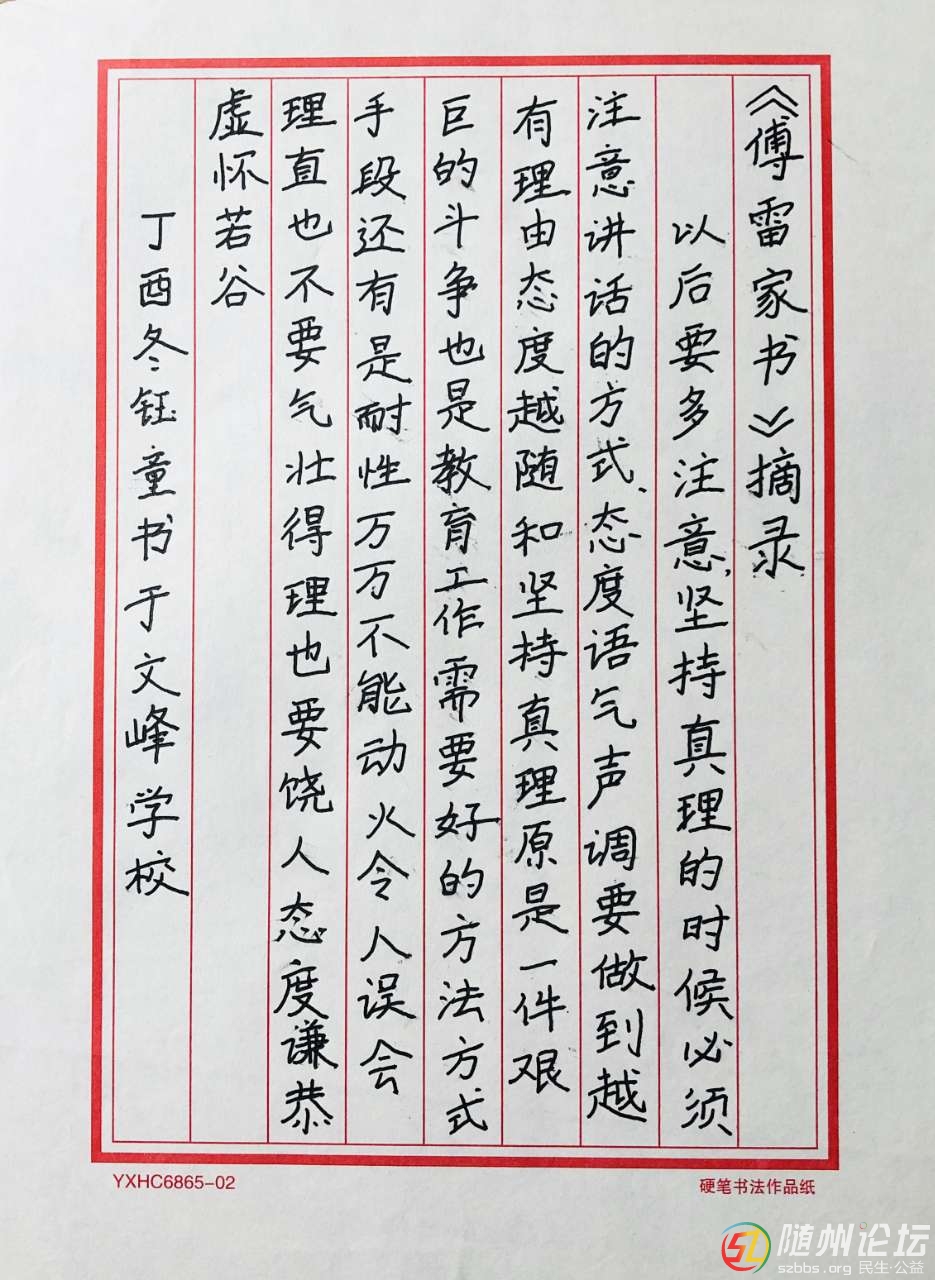 《傅雷家书》摘录
以后要多注意,坚持真理的时候必须
注意讲话的方式、态度语气声调要做到越
有理由态度越随和坚持真理原是一件艰
巨的斗争也是教育工作需要好的方法方式
手段还有是耐性万万不能动火令人误会
理直也不要气壮得理也要饶人态度谦恭
虚怀若谷
丁酉冬钰童书于文峰学校
YXHC6865-02
硬笔书法作品纸
随州论坛
szbbs.org 民生·公益